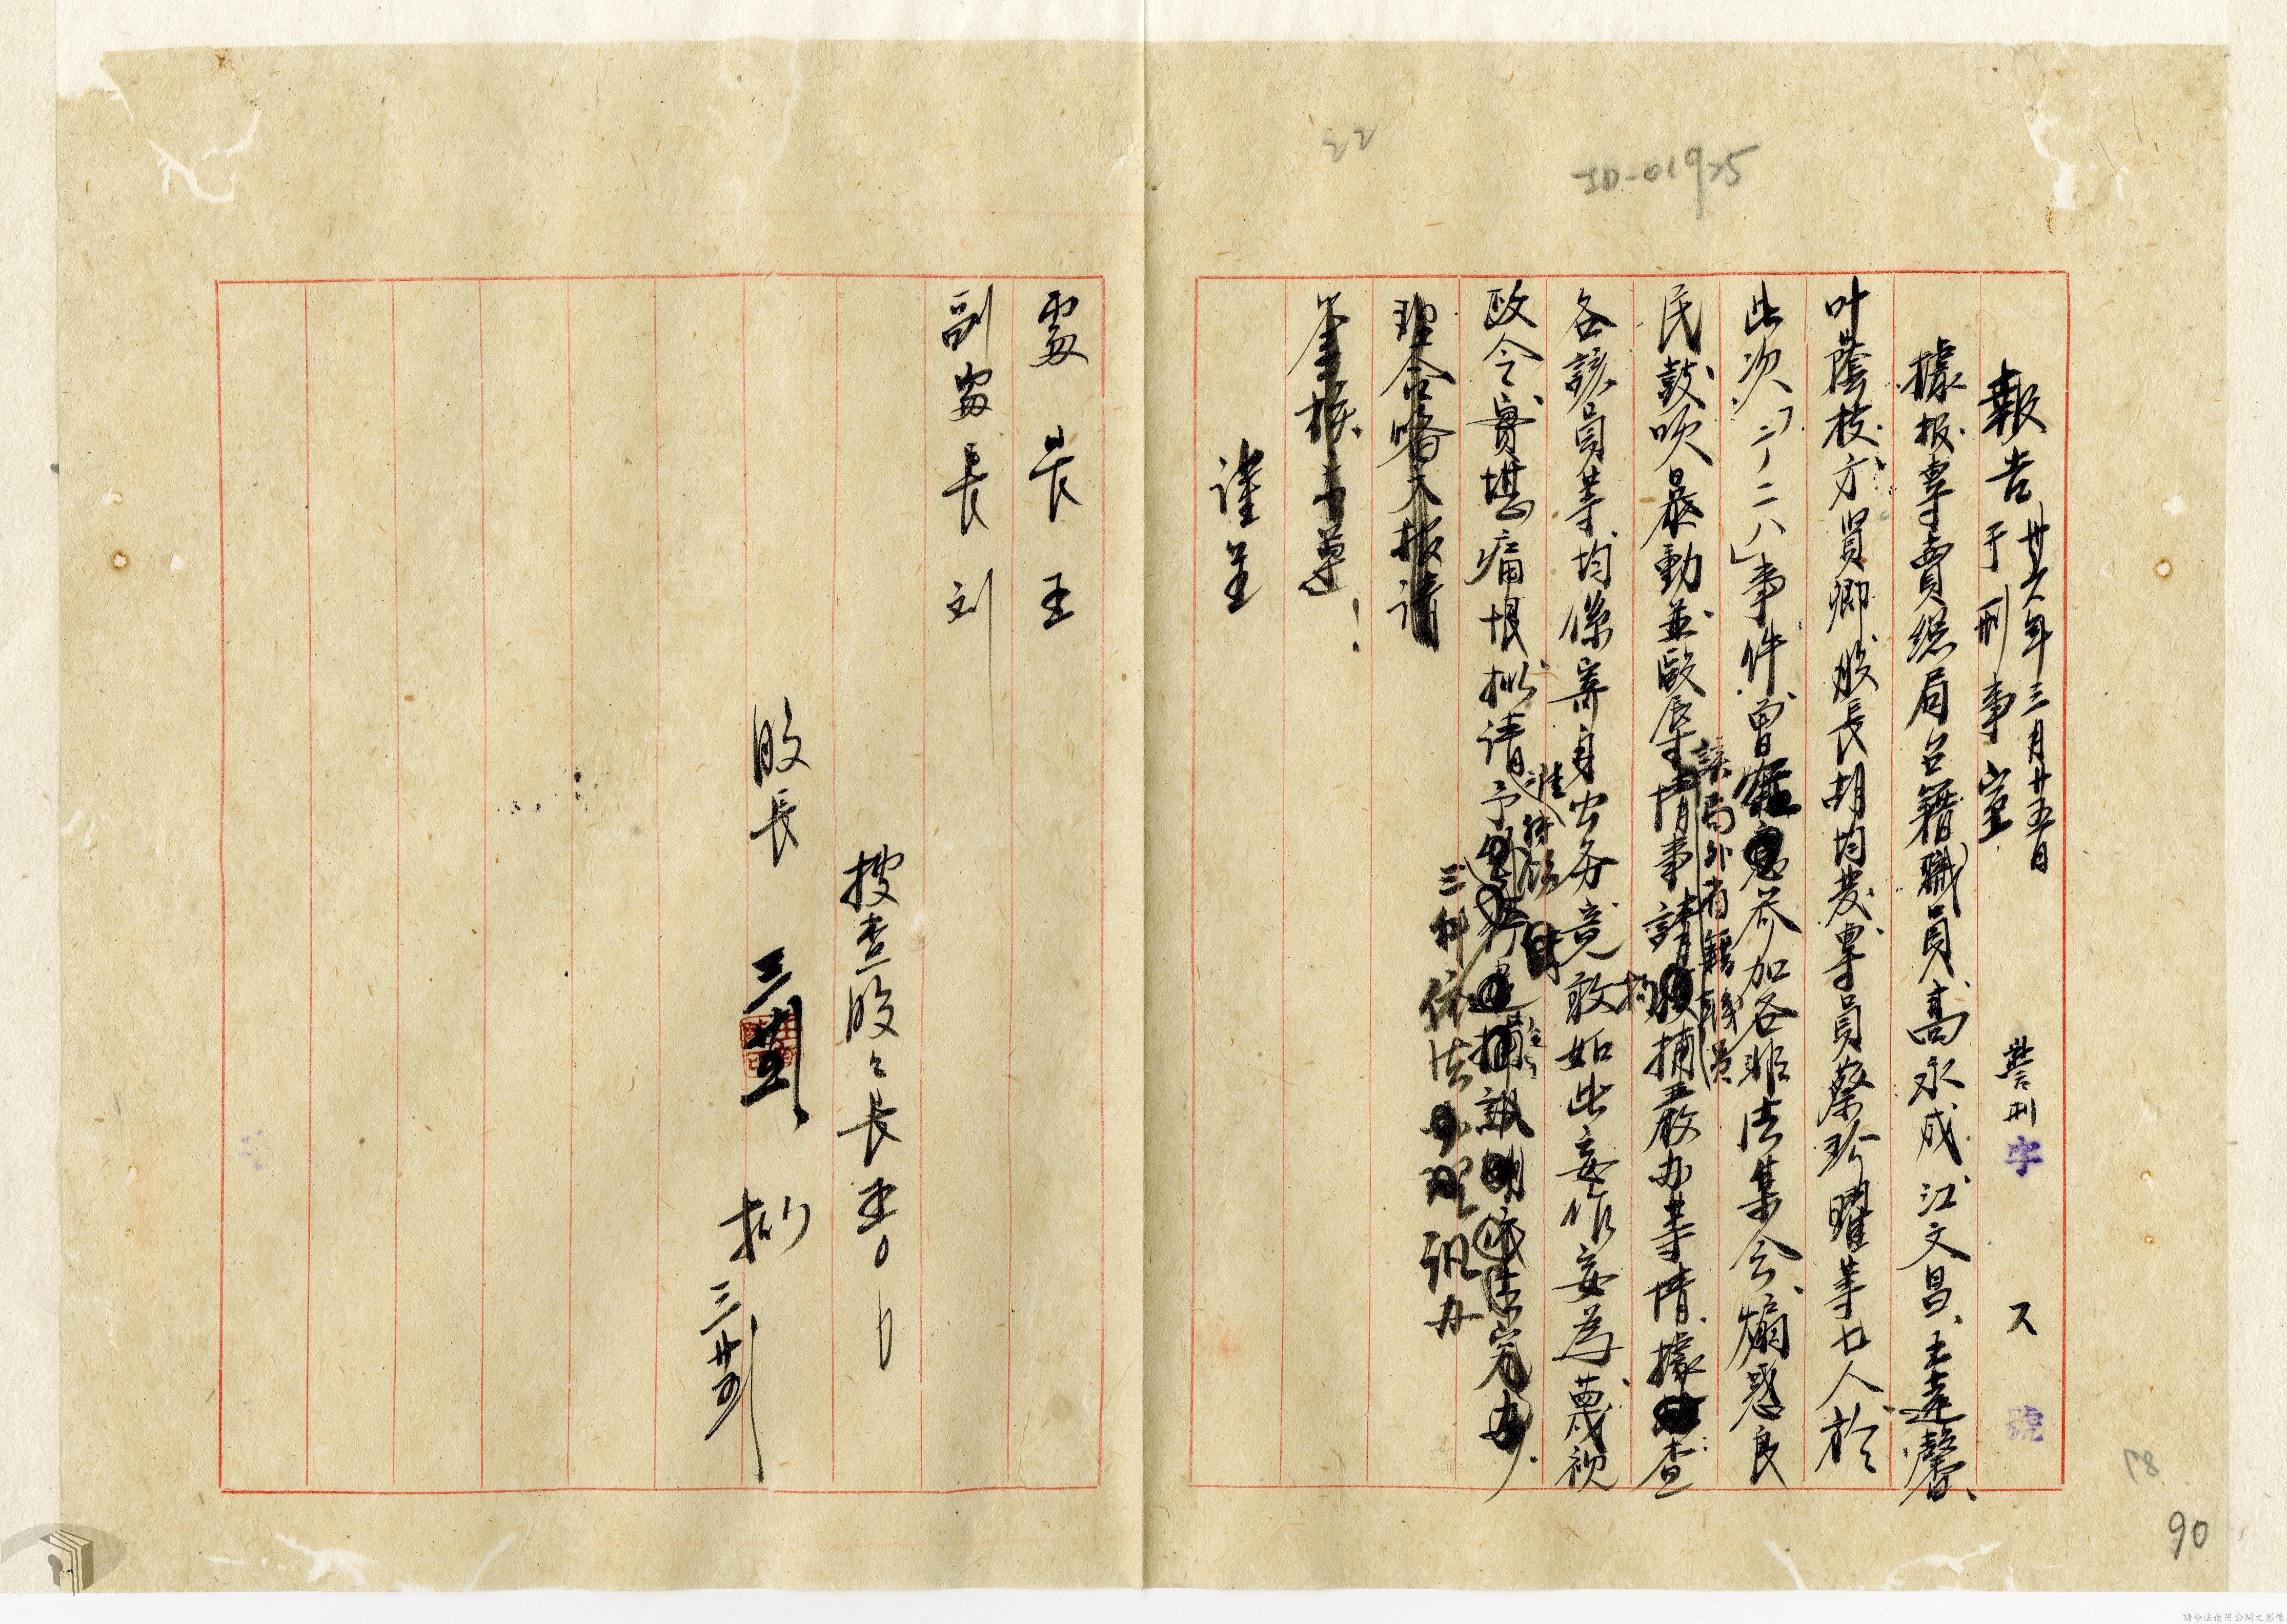 報告 卅六年三月廿五日
于刑事室
警刑字 號
據报專賣總局台籍職員高永成、江文昌、王達馨、
叶蔭枝、方賢卿、股長胡均发、專員蔡珍曜等七人於
此次「二、二八」事件曾參加各非法集会煽惑良
民鼓吹暴動並毆辱該局外省籍職員情事請拘捕嚴办等情據查
各該員等均係寄身公务竟敢如此妄作妄為蔑視
政令實堪痛恨拟請准予
依法 訊办
理合略文报請
鉴核示遵！
謹呈
處長王
副處長刘
搜查股股長
股長
拟
三 廿五
ID-01925
22
87
90
請合法使用公開之影像